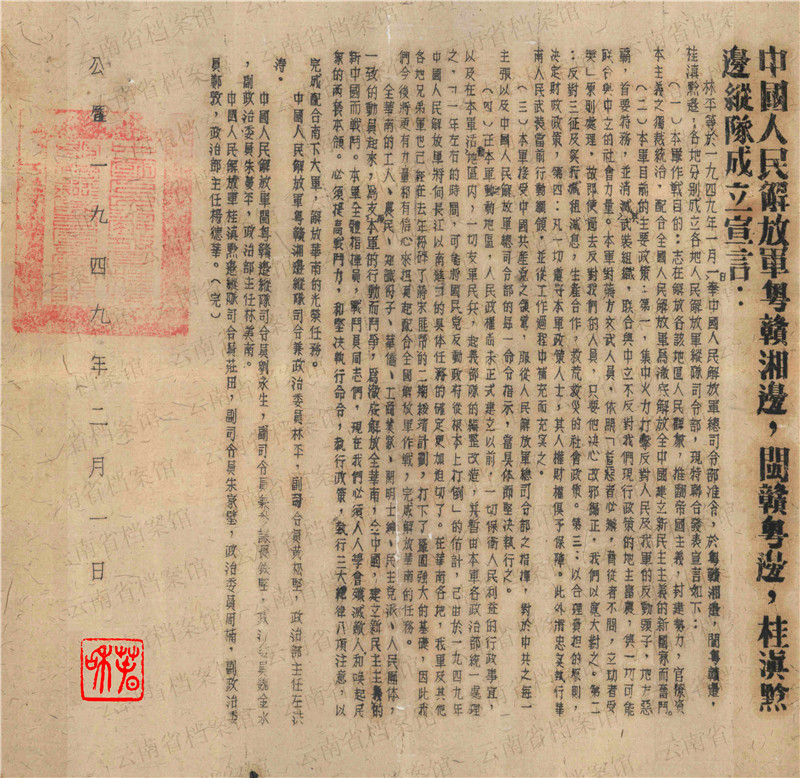 中國人民解放軍粵贛湘邊，閩贛粵邊，桂滇黔
邊縱隊成立宣言：
林平等於一九四九年一月一日奉中國人民解放軍總司令部准令，於粵贛湘邊，閩粵贛邊，
桂滇黔邊；各地分別成立各地人民解放軍縱隊司令部，現特聯合發表宣言如下：
（一）本軍作戰目的：志在解放各該地區人民解放，推翻帝國主義，封建勢力，官僚資
本主義之獨裁統治，配合全國人民解放軍爲徹底解放全中國建立新民主主義的新國家而奮鬥。
（二）本軍目前的主要政策：第一，集中火力打擊反對人民及我軍的反動頭子，地方惡
霸，首要特務，並清滅武裝組織，聯合與中立不反對我們現行政策的地主富農，與一切可能
联合與中立的社會力量。本軍對蔣方文武人員，依照「首惡者必辦，脅從者不問，立功者受
獎」原則處理，故即使過去反對我們的人員，只要他決心改邪歸正，我們以寬大對之。第二
：反對三征及实行減租減息，生產合作，救荒救災的社會政策。第三：以合理負担的原則，
決定財政政策，第四：凡一切遵守本軍政策人士，其人權財權俱予保障。此外淸忠实執行華
南人民武裝當前行動綱領，並從工作過程中補充而充实之。
（三）本軍接受中國共產黨之領導，服從人民解放軍總司令部之指揮，對於中共之每一
主張以及中國人民解放軍總司令部的每一命令指示，當具体而堅決執行之。
（四）在本軍動動地區，人民政權尚未正式建立以前，一切保衛人民利益的行政事宜，
以及在本軍活动地區内，一切友軍民兵，起義部隊的編整改造，其暫由本軍各政治部統一處理
之。「一年左右的時間，可能將國民党反動政府從根本上打倒」的佈計，已由於一九四九年
中國人民解放軍將向長江以南進軍的具体任務的確定更加迫切了。在華南各地，我軍及其他
各地兄弟軍也已經在去年粉碎了蔣宋匪幫的二期掃清計劃，打下了鞏固强大的基礎，因此我
們今後將更有力量和有信心來担負起配合全國解放軍作戰，完成解放華南的任務。
全華南的工人，農民，知識份子，華僑，工商業家，開明士紳，民主党派，人民團体，
一致的動員起來，爲支援本軍的行動而鬥爭，爲徹底解放全華南，全中國，建立新民主主義的
新中國而戰鬥。本軍全體指揮員，戰鬥員同志們，現在我們必須人人學會殲滅敵人和喚起民
衆的兩套本領。必須提高戰鬥力，和堅決執行命令，執行政策，執行三大紀律八項注意，以
完成配合南下大軍，解放華南的光榮任務。
中國人民解放軍粵贛湘邊縱隊司令兼政治委員林平，副司令員黃松堅，政治部主任左洪
濤。
中國人民解放軍閩粵贛邊縱隊司令員劉永生，副司令員
，副政治委員朱曼平，政治部主任林美南。
中國人民解放軍桂滇黔邊縱隊司令員莊田，副司令員朱家璧，政治委員周楠，副政治委
員鄭敦，政治部主任楊德華。（完）
公曆一九四九年二月一日
云南省档案馆